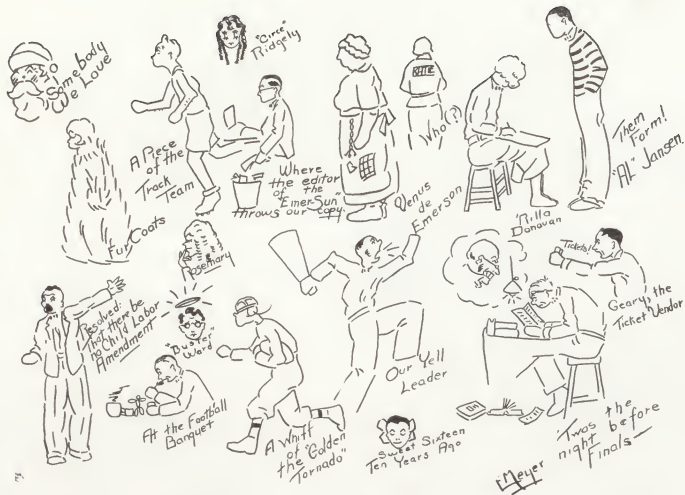 Somebody
We Love
"Circe"
Ridgely
A Piece
of the
Track
Team
Where
the editor
of the
"Emer-Sun"
throws our copy.
Who(?)
Venus
de
Emerson
'Rilla
Donovan
Them
Form!
"AL" Jansen
Fur Coats
Rosemary
Resolved:
That there be
no Child Labor
Amendment
"Buster"
Ward
At the Football
Banquet
A Whiff
of the
"Golden
Tornado"
Our Yell
Leader
Sweet Sixteen
Ten Years Ago
Tickets!
Geary, the
Ticket Vendor
'Twas the
night before
Finals—
Meyer